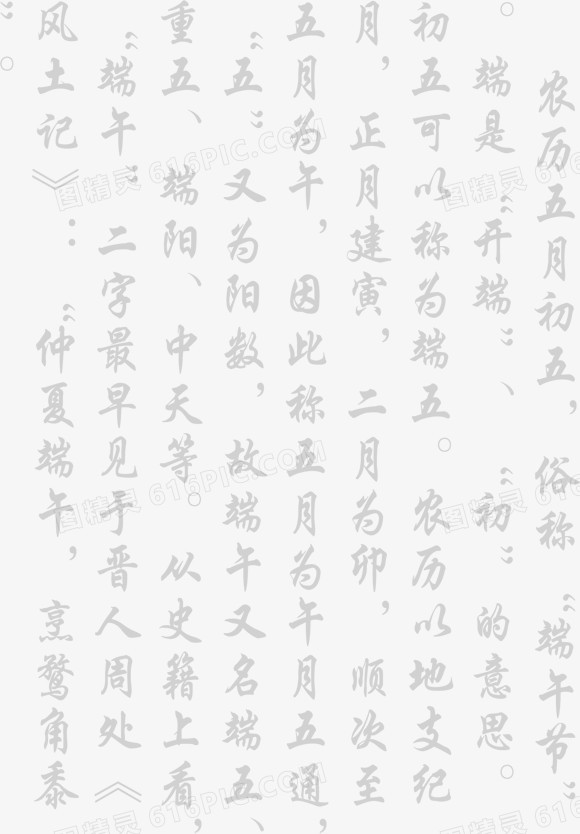 农历五月初五，俗称“端午节”
。端是“开端”、“初”的意思。
初五可以称为端五。农历以地支纪
月，正月建寅，二月为卯，顺次至
五月为午，因此称五月为午月五通，
“五”又为阳数，故端午又名端五、
重五、端阳、中天等。从史籍上看，
“端午”二字最早见于晋人周处《
风土记》：“仲夏端午，烹鹜角黍
”。
图精灵 616PIC.COM